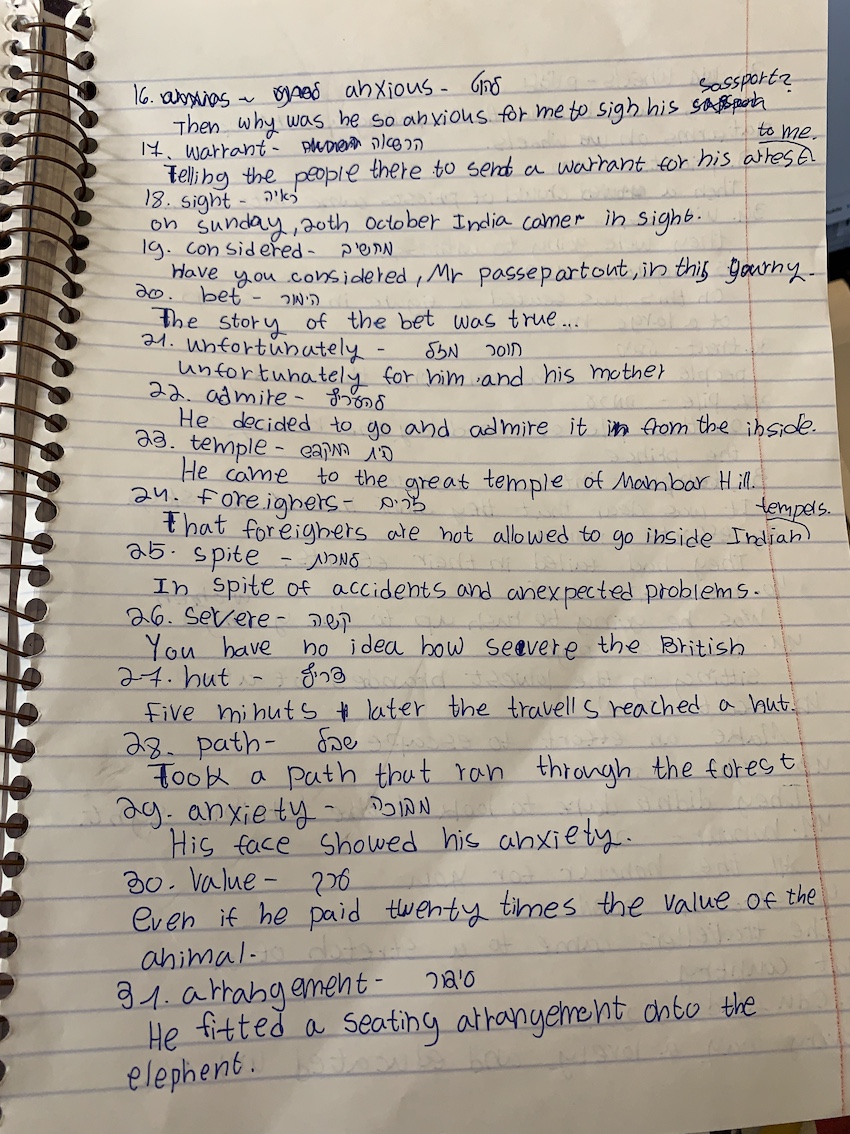 16. anxious - להוט
sassport?
Then why was he so anxious for me to sigh his
17. warrant - הרשאה
to me.
Telling the people there to send a warrant for his arrest.
18. sight - ראיה
on sunday, 20th october India camer in sight.
19. considered - מחשיב
Have you considered, Mr passepartout, in this gourny.
20. bet - הימור
The story of the bet was true...
21. unfortunately - חוסר מזל
unfortunately for him and his mother
22. admire - להעריץ
He decided to go and admire it from the inside.
23. temple - בית המקדש
He came to the great temple of Mambar Hill.
24. foreighers - זרים
tempels.
That foreighers are not allowed to go inside Indian
25. spite - למרות
In spite of accidents and anexpected problems.
26. severe - קשה
You have no idea how seevere the British
27. hut - צריף
Five minuts later the travells reached a hut.
28. path - שביל
Took a path that ran through the forest
29. anxiety -
His face showed his anxiety.
30. Value - ערך
even if he paid twenty times the value of the
animal.
31. arrangement - סידור
He fitted a seating arrangement onto the
elephent.